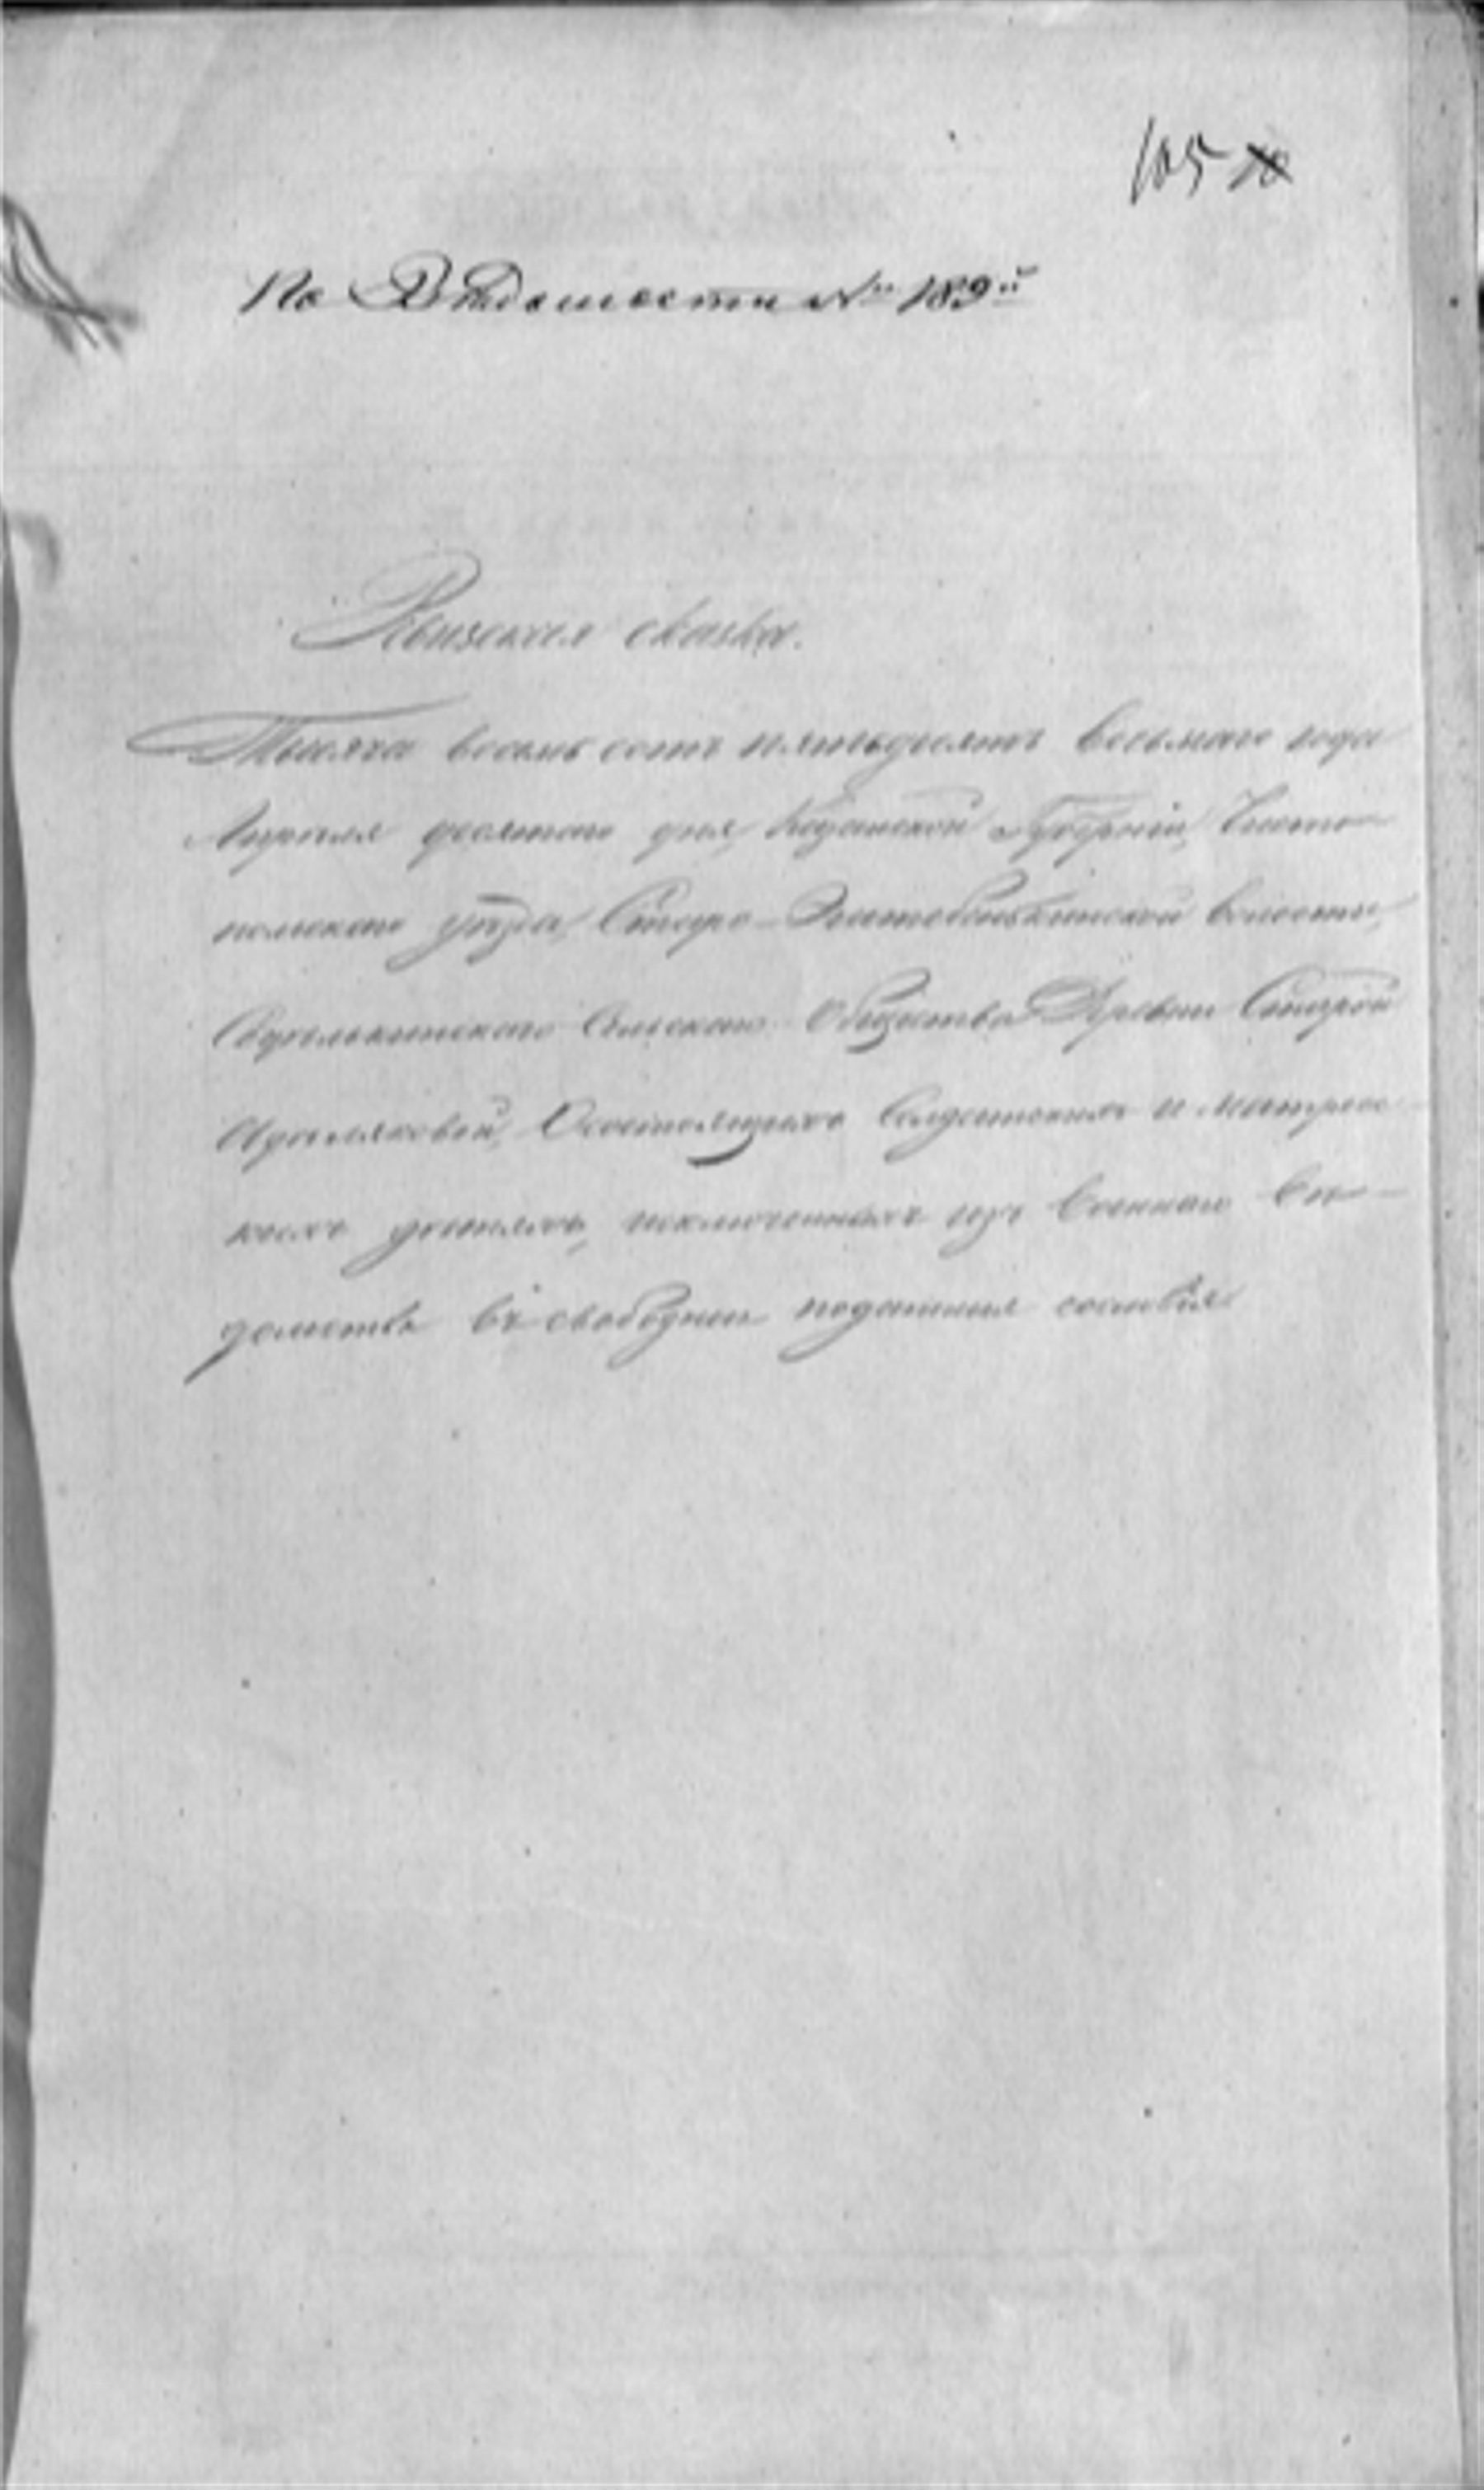 105
По Вѣдомости № 189й
Ревизская сказка.
Тысяча восемь сотъ пятьдесятъ восьмаго года
Апреля десятаго дня, Казанской Губерніи, Чисто-
польскаго уѣзда, Старо- волости,
Сельскаго Общества Деревни Старой
О состоящихъ Солдатскихъ и Матрос-
скихъ дѣтяхъ, исключенныхъ изъ Военнаго Вѣ-
домства въ свободныя податныя сословія